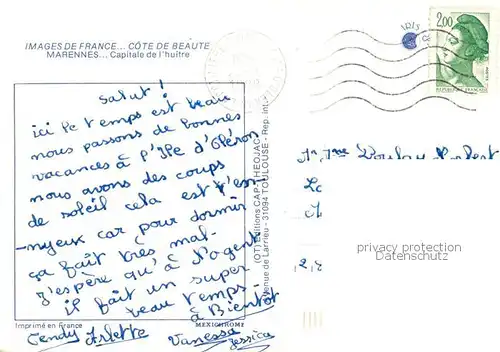 IMAGES DE FRANCE... CÔTE DE BEAUTE
MARENNES... Capitale de l'huître
Salut !
ici le temps est beau
nous passons de bonnes
vacances à l'Ile d'Oléron
nous avons des coups
de soleil cela est t'en
-nuyeux car pour dormir
ça fait très mal.
J'espère qu'à Nogent
il fait un super
beau temps !
à Bientôt
Cendy Arlette Vanessa
Jessica
Imprimé en France
MEXICHROME
(OT) Editions CAP-THEOJAC
Avenue de Larrieu - 31094 TOULOUSE - Rep. int.
2,00
REPUBLIQUE FRANCAISE
privacy protection
Datenschutz